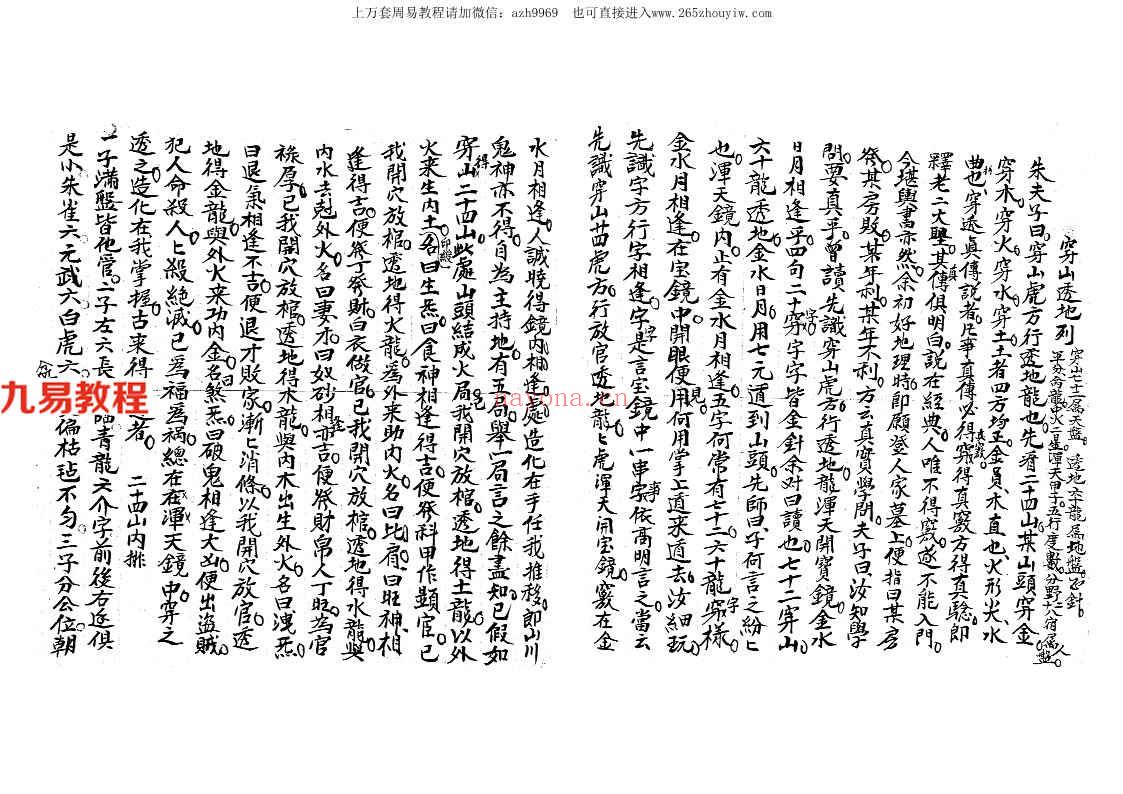 上万套周易教程请加微信：azh9969　也可直接进入www.265zhouyiw.com
穿山透地列
穿山七十二為天盤。透地六十龍為地盤。
平分六龍
渾天甲子五行度數分野六宿為人盤
朱夫子曰穿山虎方行透地龍也先看二十四山某山頭穿金
穿木穿火穿水穿土土者四方塲正金員木直也火形尖水
曲也穿透真傳說者凡事真傳必得竅得真竅方得真驗即
釋老二大聖其傳俱明白說在經典人唯不得竅遂不能入門
今堪輿書亦然余初好地理時即願登人家墓上便指曰某房
發某房敗某年利某年不利方云真實學問夫子曰汝知學
問要真乎曾讀先識穿山虎方行透地龍渾天開寶鏡金水
日月相逢乎四句二十字字皆金針余对曰讀也七十二穿山
六十龍透地金水日月用七元道到山頭先師曰子何言之紛匕
也渾天鏡内止有金水月相逢五字何常有七十二六十龍字樣
金水月相逢在宝鏡中開眼便見用何用掌上道来道去汝細玩
先識字方行字相逢字字是言宝鏡中一串事宰依高明言之當云
先識穿山廿四虎方行放官透地龍匕虎渾天開宝鏡竅在金
水月相逢人誠曉得鏡内相逢處造化在手任我推移即山川
鬼神亦不得自為主持地有五局舉一局言之餘盡知已假如
穿得山二十四山此處山頭結成火局我開穴放棺透地得土龍以外
火来生内土名曰生炁曰食神相逢得吉便發科甲作顯官已
我開穴放棺透地得火龍為外来助内火名曰比肩曰旺神相
逢得吉便發丁發財白衣做官已我開穴放棺透地得水龍與
内水去尅外火名曰妻才曰奴砂相逢亦吉便發財帛人丁旺為官
祿厚已我開穴放棺透地得木龍與内木出生外火名曰洩炁
曰退氣相逢不吉便退才敗家漸匕消條以我開穴放官透
地得金龍與外火来功内金名曰煞炁曰破鬼相逢大凶便出盜賊
犯人命殺人匕殺絶滅已為福為禍總在在渾天鏡中穿之
透之造化在我掌握古来得
者　二十四山内排
一子满盤皆他管二子左六長
青龍六介字前後右逐俱
是小朱雀六元武六白虎六
偏枯毡不匀三子分公位朝
九易教程
nayona.cn